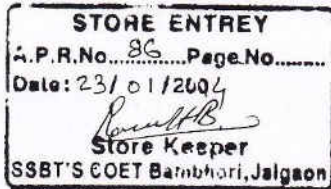 STORE ENTREY
A.P.R.No. 86 Page No.........
Date: 23/01/2004
Store Keeper
SSBT'S COET Bambhori, Jalgaon